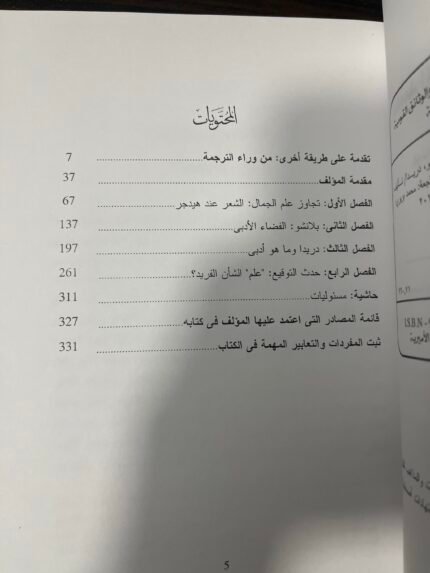 المحتويات
تقدمة على طريقة أخرى: من وراء الترجمة 7
مقدمة المؤلف 37
الفصل الأول: تجاوز علم الجمال: الشعر عند هيدجر 67
الفصل الثانى: بلانشو: الفضاء الأدبى 137
الفصل الثالث: دريدا وما هو أدبى 197
الفصل الرابع: حدث التوقيع: "علم" الشأن الفريد؟ 261
حاشية: مسئوليات 311
قائمة المصادر التى اعتمد عليها المؤلف فى كتابه 327
ثبت المفردات والتعابير المهمة فى الكتاب 331
5
والوثائق القومية
I.S.B.N -
الأميرية